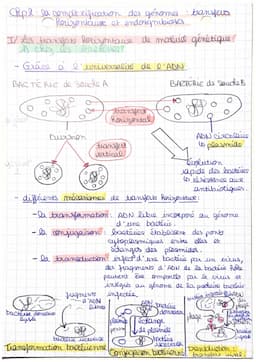 Chp 2 la complexification des génomes : transferts
horizontaux et endosymbioses.
I/ Les transferts horizontaux de matériel génétique
A chez les bactéries
- Grâce à l'universalité de l'ADN
BACTÉRIE de souche A
BACTÉRIE de souche B
transfert
horizontal
Division
transfert
vertical
ADN circulaire
plasmide
évolution
rapide des bactéries
ex résistances aux
antibiotiques.
- différents mécanismes de transferts horizontaux :
- La transformation : ADN libre incorporé au génome
d'une bactérie
- La conjugaison : bactéries établissent des ponts
cytoplasmiques entre elles et
échanges des plasmides.
- La transduction : infect° d'une bactérie par un virus,
des fragments d'ADN de la bactérie hôte
peuvent être emportés par le virus et
intégrés au génome de la prochaine bactérie
infectée.
fragments
d'ADN
libres
bactérie
Transformation bactérienne
Conjugaison bactérienne
Transduction